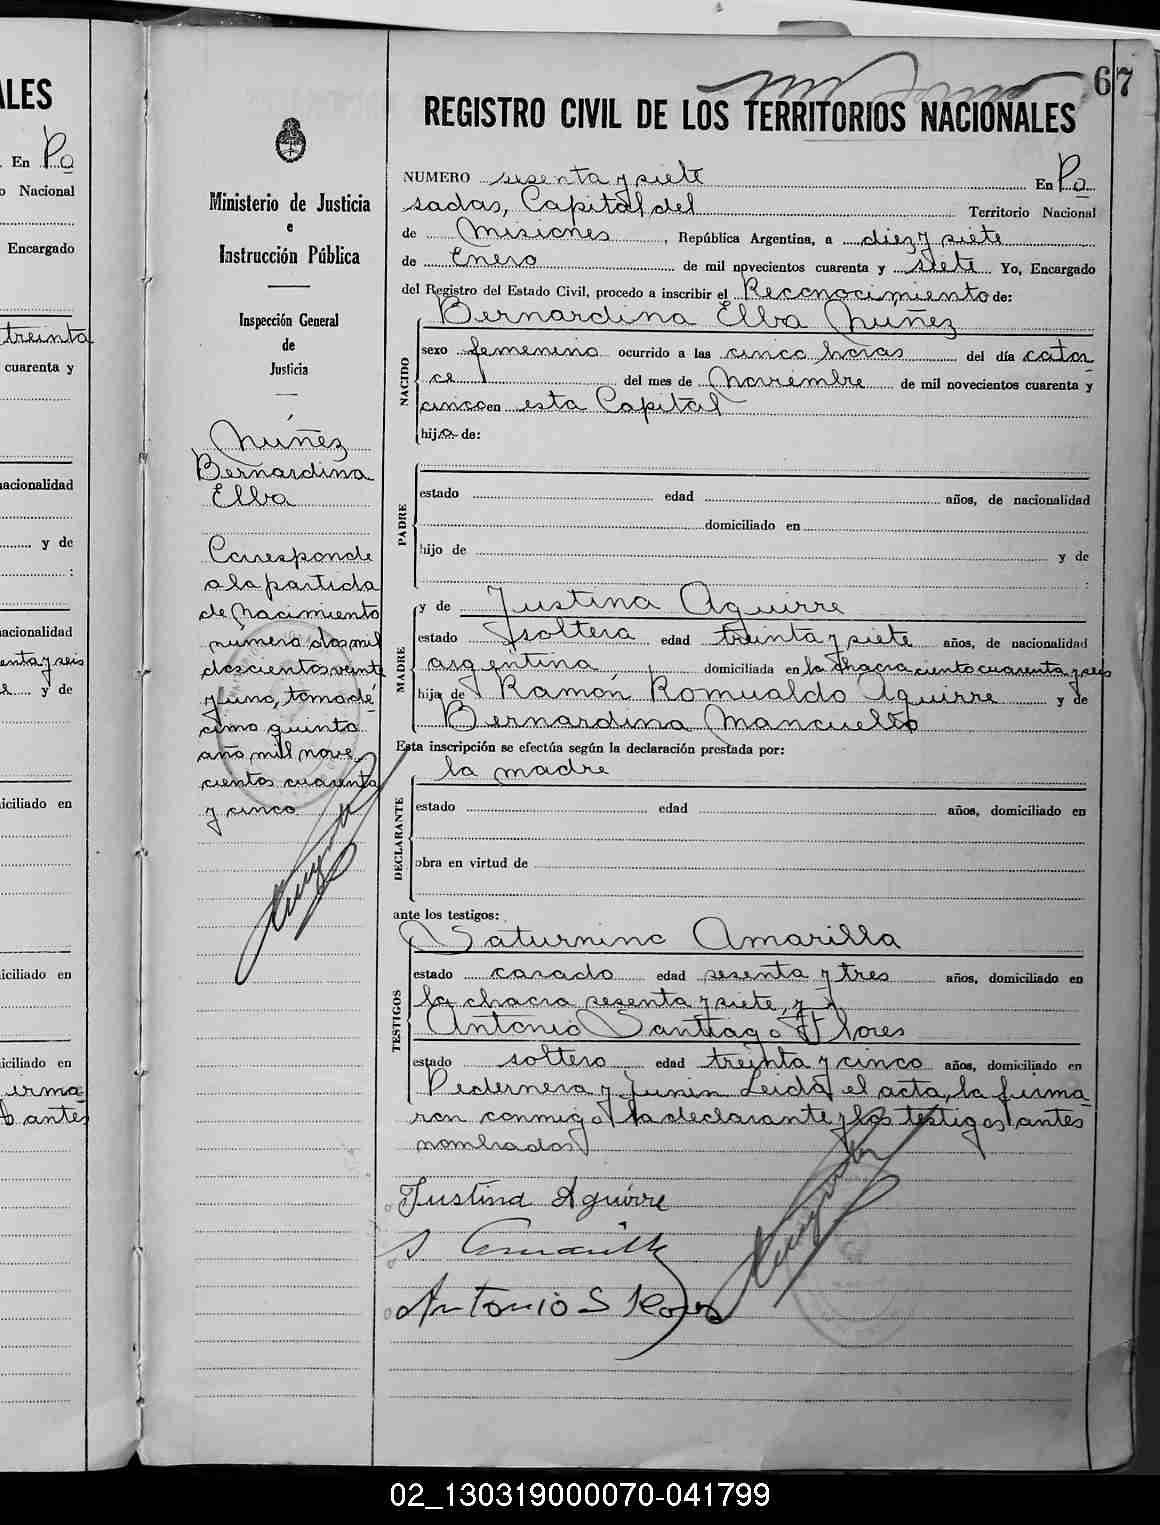 ALES
En Po
o Nacional
Encargado
treinta
cuarenta y
nacionalidad
y de
:
nacionalidad
enta y seis
y de
iciliado en
iciliado en
iciliado en
irma-
antes
67
REGISTRO CIVIL DE LOS TERRITORIOS NACIONALES
Ministerio de Justicia
e
Instrucción Pública
Inspección General
de
Justicia
Núñez
Bernardina
Elba
Corresponde
a la partida
de Nacimiento
número dos mil
doscientos veinte
y uno, tomo dé-
cimo quinto
año mil nove-
cientos cuarenta
y cinco
NUMERO sesenta y siete En Po
sadas, Capital del Territorio Nacional
de Misiones, República Argentina, a diez y siete
de Enero de mil novecientos cuarenta y siete Yo, Encargado
del Registro del Estado Civil, procedo a inscribir el Reconocimiento de:
NACIDO
Bernardina Elba Núñez
sexo femenino ocurrido a las cinco horas del día cator
ce del mes de Noviembre de mil novecientos cuarenta y
cinco en esta Capital
hija de:
PADRE
estado edad años, de nacionalidad
domiciliado en
hijo de y de
:
MADRE
y de Justina Aguirre
estado soltera edad treinta y siete años, de nacionalidad
argentina domiciliada en la chacra ciento cuarenta y seis
hija de Ramón Romualdo Aguirre y de
Bernardina Mancuello
Esta inscripción se efectúa según la declaración prestada por:
la madre
DECLARANTE
estado edad años, domiciliado en
obra en virtud de
ante los testigos:
TESTIGOS
Saturnino Amarilla
estado casado edad sesenta y tres años, domiciliado en
la chacra sesenta y siete, y
Antonio Santiago Flores
estado soltero edad treinta y cinco años, domiciliado en
Pedernera y Junin Leida el acta, la firma-
ron conmigo la declarante y los testigos antes
nombrados
Justina Aguirre
S Amarilla
Antonio S Flores
02_130319000070-041799